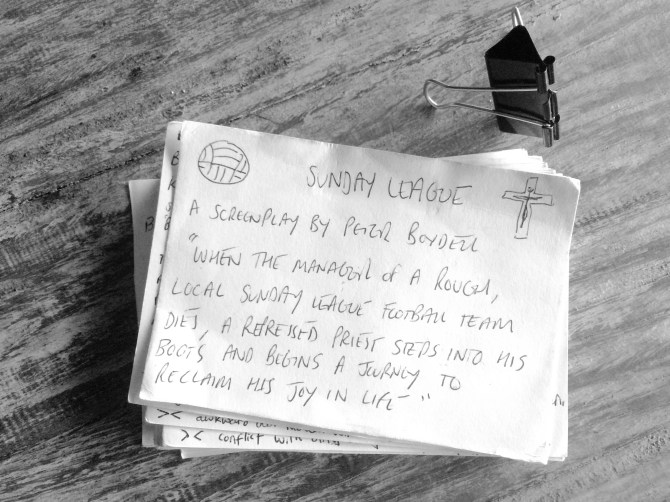 SUNDAY LEAGUE
A SCREENPLAY BY PETER BOYDELL
"WHEN THE MANAGER OF A ROUGH,
LOCAL SUNDAY LEAGUE FOOTBALL TEAM
DIES, A REPRESSED PRIEST STEPS INTO HIS
BOOTS AND BEGINS A JOURNEY TO
RECLAIM HIS JOY IN LIFE"
>< awkward
>< conflict with